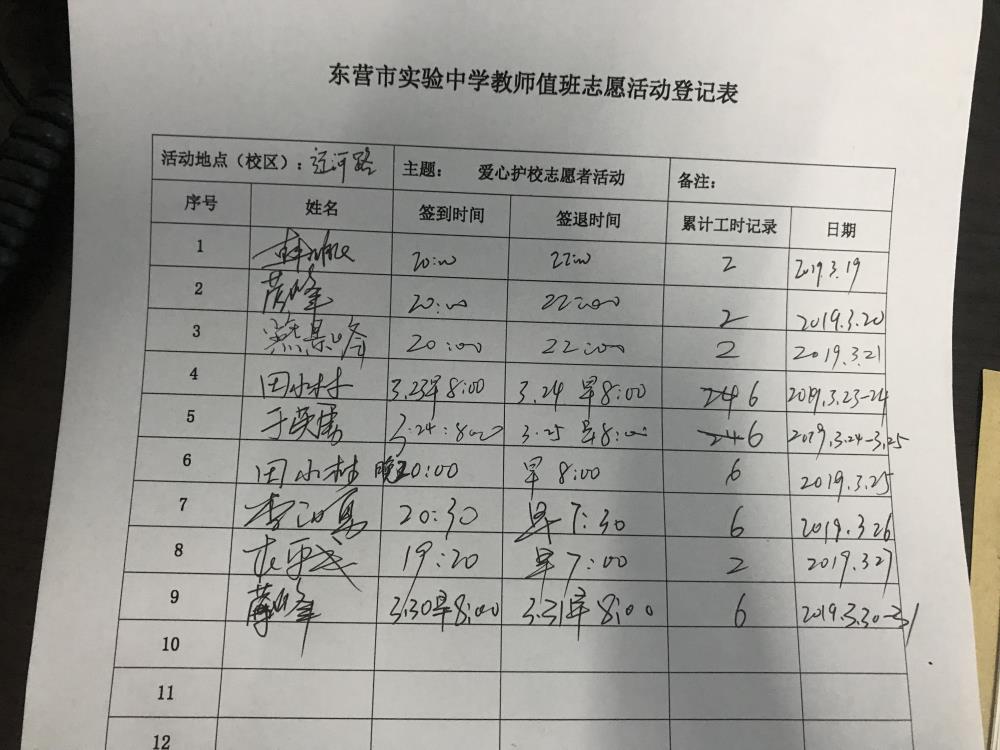 东营市实验中学教师值班志愿活动登记表
活动地点（校区）：辽河路 主题： 爱心护校志愿者活动 备注：
序号 姓名 签到时间 签退时间 累计工时记录 日期
1 20:00 22:00 2 2019.3.19
2 峰 20:00 22:00 2 2019.3.20
3 20:00 22:00 2 2019.3.21
4 田小林 3.23早8:00 3.24 早8:00 6 2019.3.23-24
5 于英勇 3.24:8:00 3.25 早8:00 6 2019.3.24-3.25
6 田小林 晚20:00 早 8:00 6 2019.3.25
7 李 勇 20:30 早7:30 6 2019.3.26
8 19:20 早7:00 2 2019.3.27
9 薛峰 3.30早8:00 3.31早8:00 6 2019.3.30-31
10
11
12